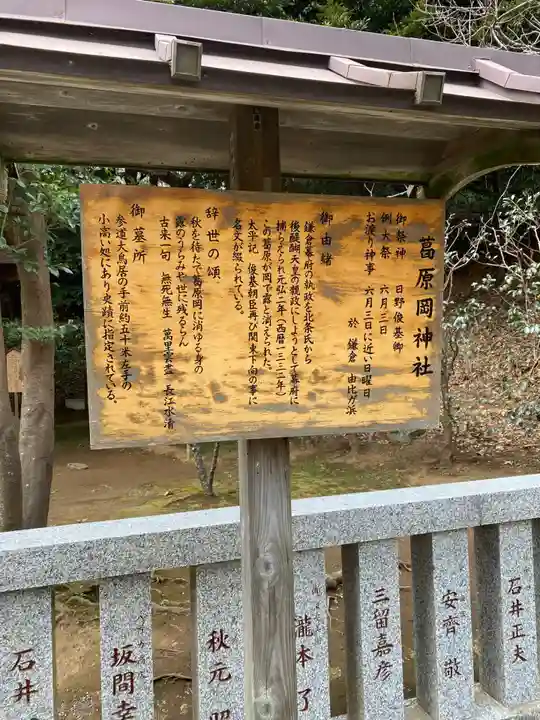 葛原岡神社
御祭神 日野俊基卿
例大祭 六月三日
お渡り神事 六月三日に近い日曜日
於 鎌倉 由比ヶ浜
御由緒
鎌倉幕府の執政を北条氏から
後醍醐天皇の親政にしようとして幕府に
捕えられ元弘二年(西暦一三三二年)
この葛原が岡で露と消えられた。
太平記 俊基朝臣再び関東下向の事に
名文が綴られている。
辞世の頌、
秋を待たで葛原岡に消ゆる身の
露のうらみや世に残るらん
古来一句 無死無生 萬里雲盡 長江水清
御墓所
参道大鳥居の手前約五十米左手の
小高い処にあり史蹟に指定されている。
石井正夫
安齊敬
三留嘉彦
瀧本了
秋元
坂間幸
石井